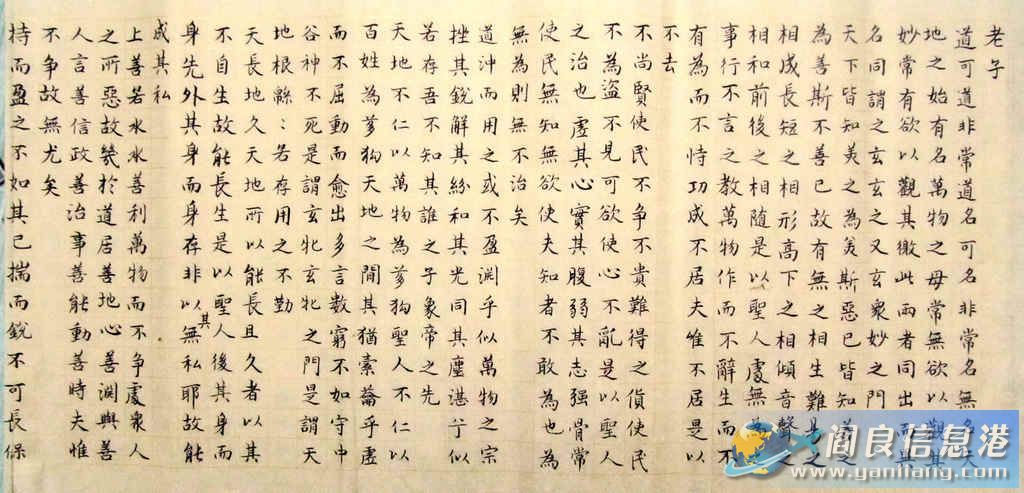 老子
道可道非常道名可名非常名無名天
地之始有名萬物之母常無欲以觀其
妙常有欲以觀其徼此兩者同出而異
名同謂之玄玄之又玄衆妙之門
天下皆知美之為美斯惡已皆知善之
為善斯不善已故有無之相生難易之
相成長短之相形高下之相傾音聲之
相和前後之相隨是以聖人處無為
事行不言之教萬物作而不辭生而不
有為而不恃功成不居夫惟不居是以
不去
不尚賢使民不争不貴難得之貨使民
不為盜不見可欲使心不亂是以聖人
之治也虛其心實其腹弱其志强骨常
使民無知無欲使夫知者不敢為也為
無為則無不治矣
道沖而用之或不盈淵乎似萬物之宗
挫其銳解其紛和其光同其塵湛兮似
若存吾不知其誰之子象帝之先
天地不仁以萬物為芻狗聖人不仁以
百姓為芻狗天地之間其猶橐籥乎虛
而不屈動而愈出多言數窮不如守中
谷神不死是謂玄牝玄牝之門是謂天
地根綿：若存用之不勤
天長地久天地所以能長且久者以其
不自生故能長生是以聖人後其身而
身先外其身而身存非以其無私耶故能
成其私
上善若水水善利萬物而不争處衆人
之所惡故幾於道居善地心善淵與善
人言善信政善治事善能動善時夫惟
不争故無尤矣
持而盈之不如其已揣而銳不可長保
阎良信息港
www.yanliang.com